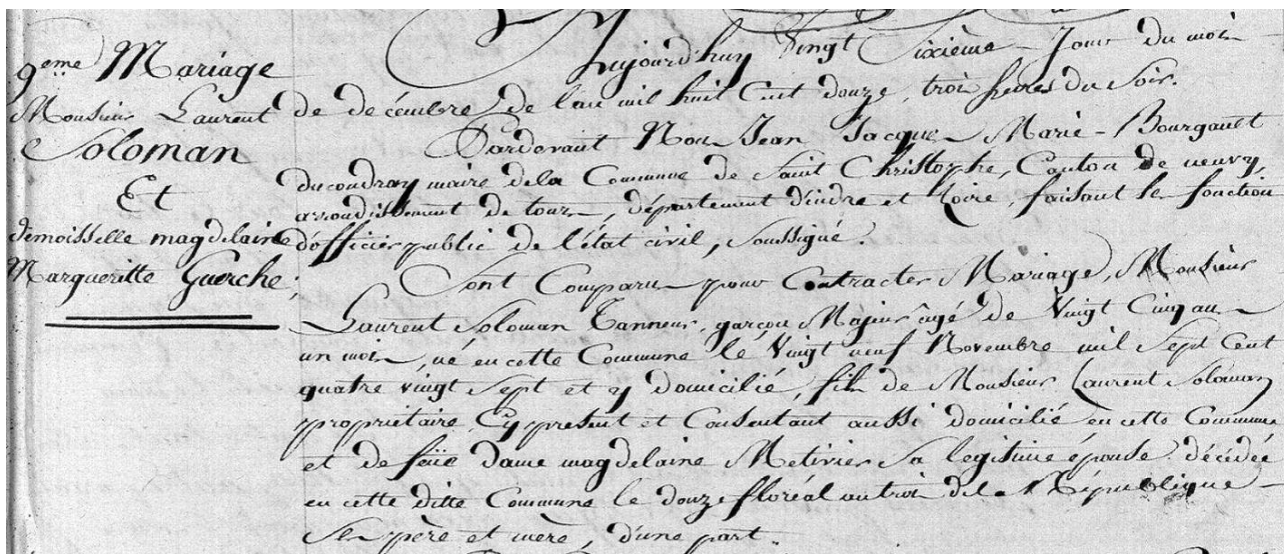 9eme Mariage
Monsieur Laurent
Soloman
Et
demoisselle magdelaine
Margueritte Guerche.
Aujourd'huy Vingt Sixième Jour du mois
de décembre de l'an mil huit Cent douze, trois heures du Soir.
Pardevant Nous Jean Jacques Marie Bourgault
ducoudray maire de la Commune de Saint Christophe, Canton de neuvy,
arrondissement de tours, département d'indre et Loire, faisant les fonction
d'officier public de l'état civil, soussigné.
Sont Comparus pour Contracter Mariage, Monsieur
Laurent Soloman Tanneur, garçon Majeur âgé de Vingt Cinq ans
un mois, né en cette Commune le Vingt neuf Novembre mil Sept Cent
quatre vingt Sept et y domicilié, fils de Monsieur Laurent Soloman
propriétaire, Cy present et Consentant aussi domicilié en cette Commune
et de feüe Dame magdelaine Metivier Sa legitime épouse décédée
en cette ditte Commune le douze floréal an trois de la République
Ses père et mère, d'une part.